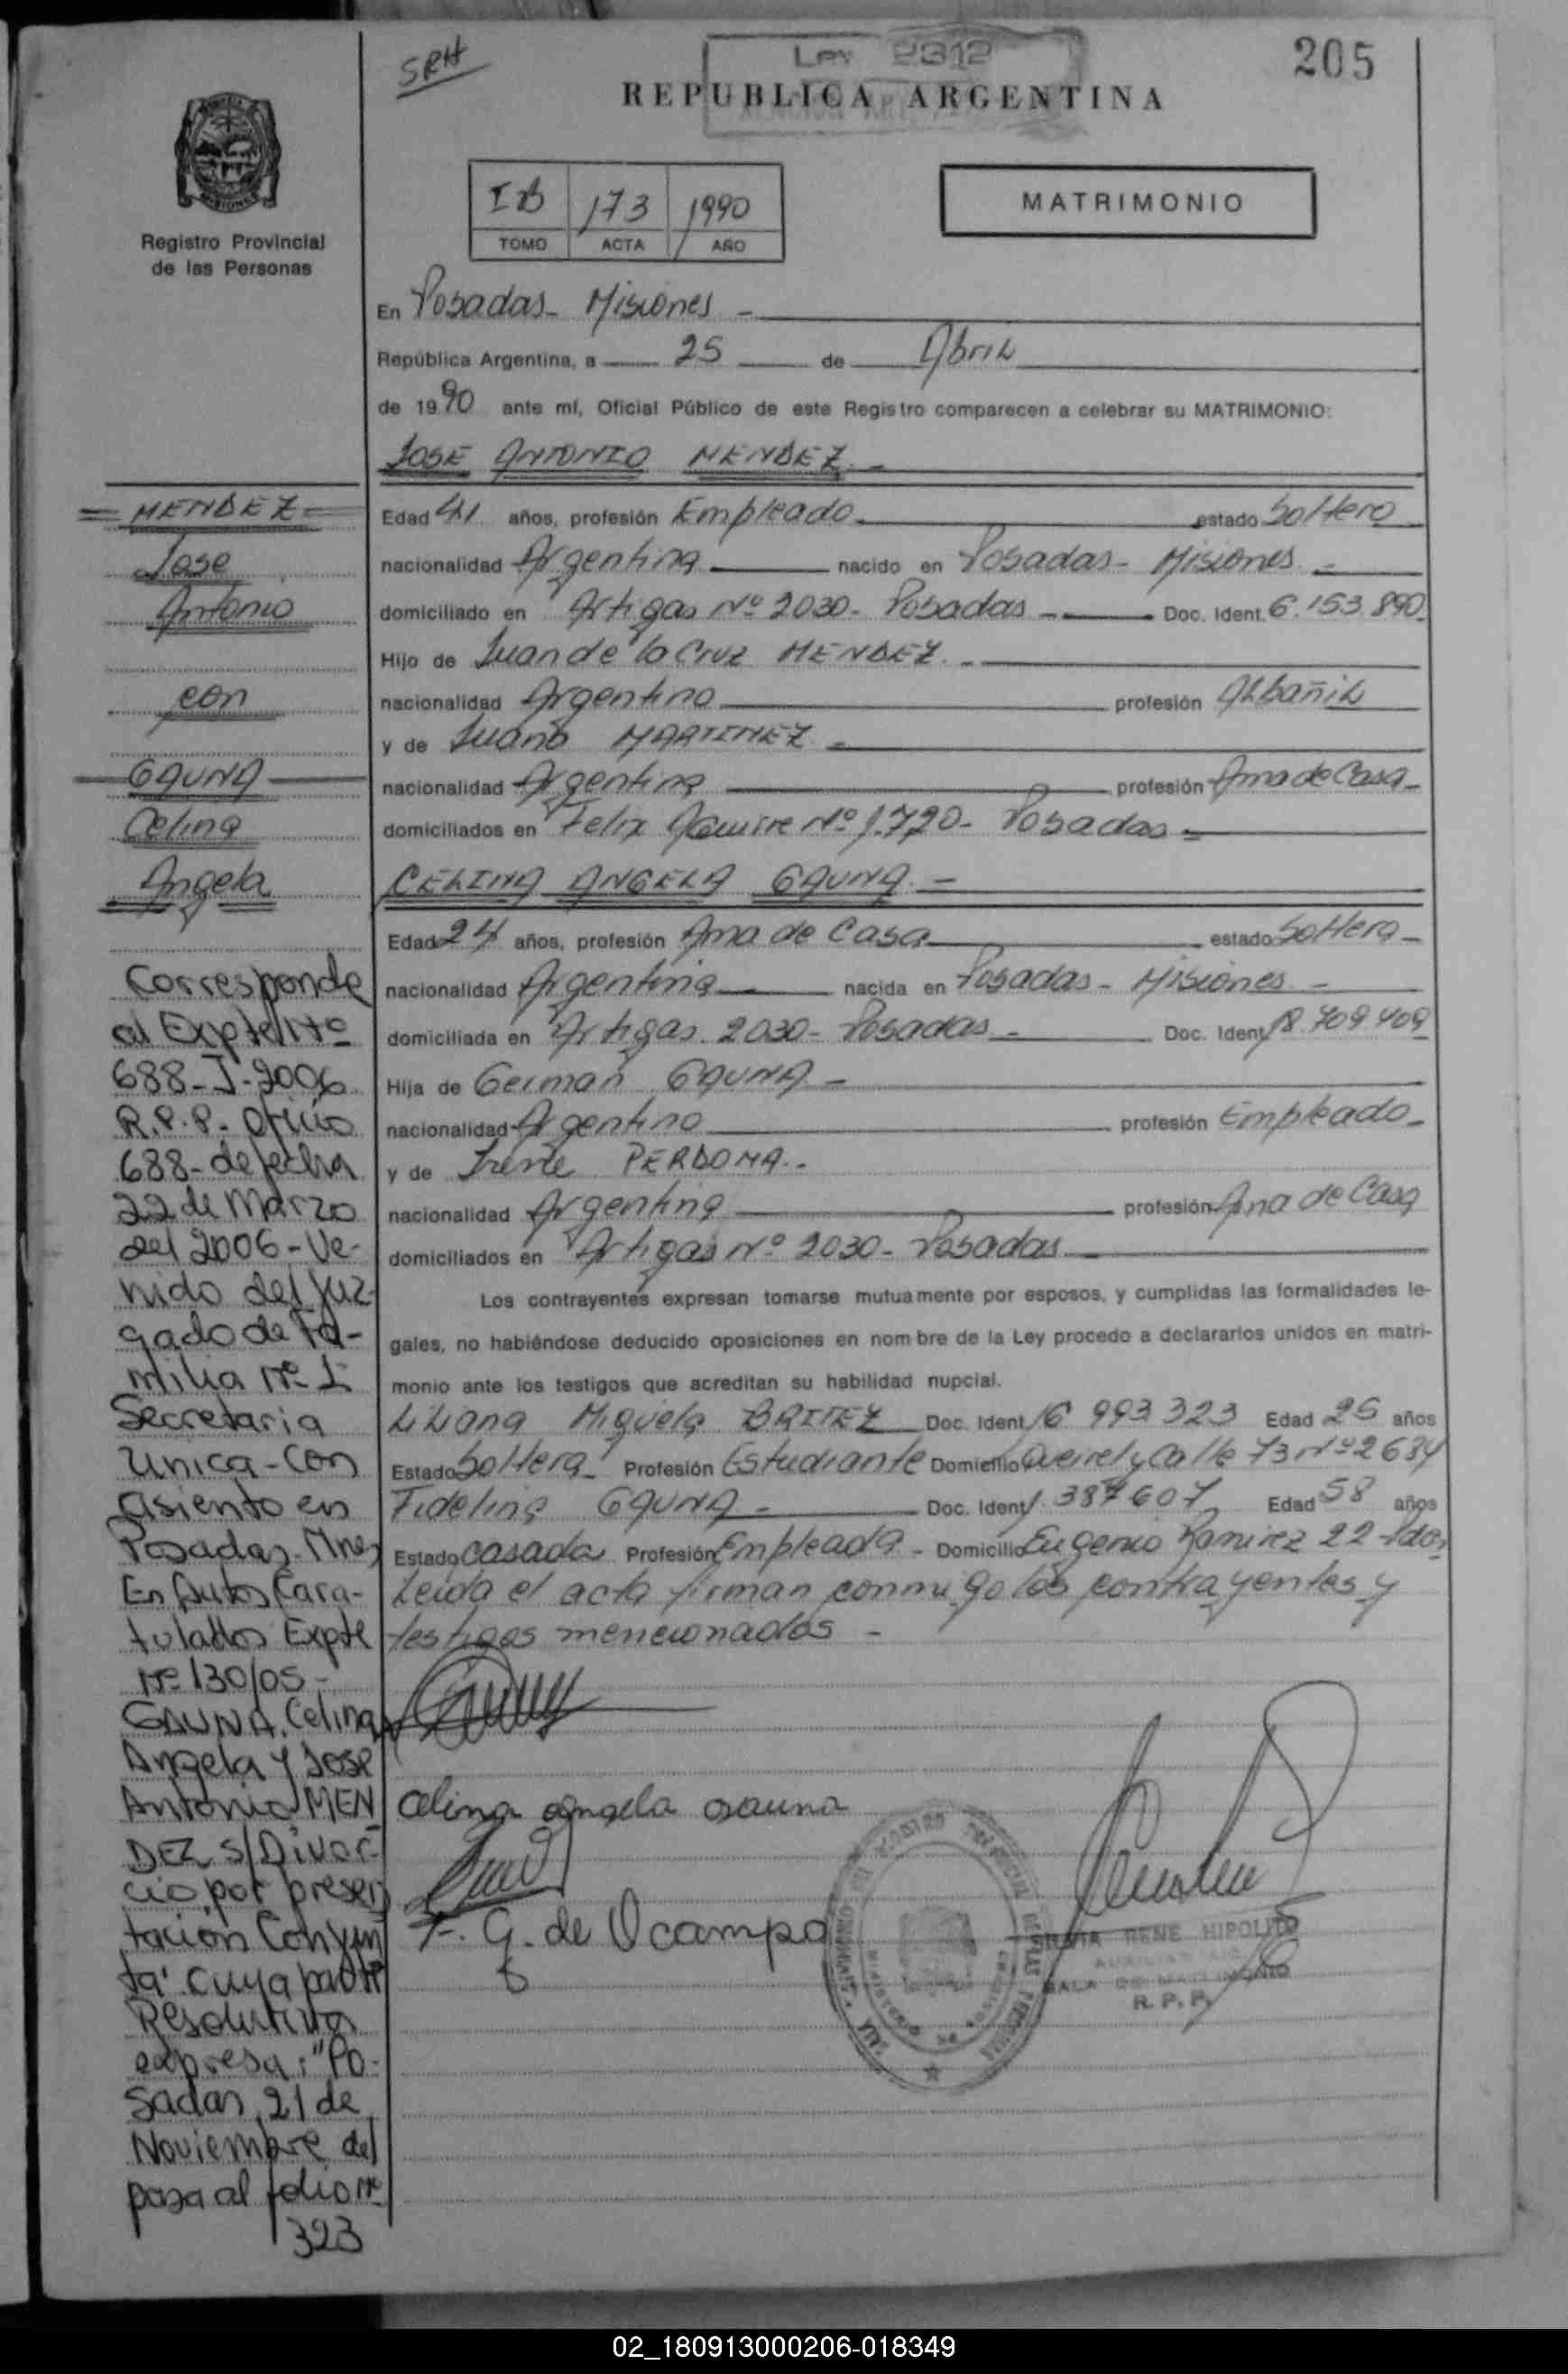 SRH
Ley 2312
205
REPUBLICA ARGENTINA
MISIONES
Registro Provincial
de las Personas
I B 173 1990
TOMO ACTA AÑO
MATRIMONIO
En Posadas - Misiones -
República Argentina, a 25 de Abril
de 1990 ante mí, Oficial Público de este Registro comparecen a celebrar su MATRIMONIO:
JOSE ANTONIO MENDEZ. -
Edad 41 años, profesión Empleado. estado Soltero
nacionalidad Argentina nacido en Posadas - Misiones -
domiciliado en Artigas Nº 2030 - Posadas - Doc. Ident. 6.153.890
Hijo de Juan de la Cruz MENDEZ. -
nacionalidad Argentino profesión Albañil
y de Juana MARTINEZ -
nacionalidad Argentina profesión Ama de Casa -
domiciliados en Felix Aguirre Nº 1.720 - Posadas -
CELINA ANGELA GAUNA. -
Edad 24 años, profesión Ama de Casa estado Soltera -
nacionalidad Argentina nacida en Posadas - Misiones -
domiciliada en Artigas 2030 - Posadas - Doc. Ident. 18.709.409
Hija de German GAUNA -
nacionalidad Argentino profesión Empleado -
y de Irene PERDOMA. -
nacionalidad Argentina profesión Ama de Casa
domiciliados en Artigas Nº 2030 - Posadas
Los contrayentes expresan tomarse mutuamente por esposos, y cumplidas las formalidades le-
gales, no habiéndose deducido oposiciones en nombre de la Ley procedo a declararlos unidos en matri-
monio ante los testigos que acreditan su habilidad nupcial.
Liliana Miguela BRITEZ Doc. Ident. 16 993 323 Edad 25 años
Estado Soltera - Profesión Estudiante Domicilio Queirel y Calle 73 Nº 2634
Fidelina GAUNA - Doc. Ident. 1.387607 Edad 58 años
Estado Casada Profesión Empleada - Domicilio Eugenio Ramirez 22 - Pdas
Leida el acta firman conmigo los contrayentes y
testigos mencionados -
Celina Angela Gauna
F. G. de Ocampo
RENE HIPOLITO
SALA DE MATRIMONIO
R. P. P.
MENDEZ
Jose
Antonio
con
GAUNA
Celina
Angela
Corresponde
al Expte Nº
688-J-2006
R.P.P. Oficio
688- de fecha
22 de Marzo
del 2006 - Ve-
nido del Juz-
gado de Fa-
milia Nº 1
Secretaria
Unica - Con
asiento en
Posadas. Mnes
En Autos Cara-
tulados Expte
Nº 130/05 -
GAUNA, Celina
Angela y Jose
Antonio MEN
DEZ s/Divor-
cio por presen
tación Conjun
ta" cuya parte
Resolutiva
expresa: "Po-
sadas, 21 de
Noviembre del
pasa al folio Nº
323
02_180913000206-018349